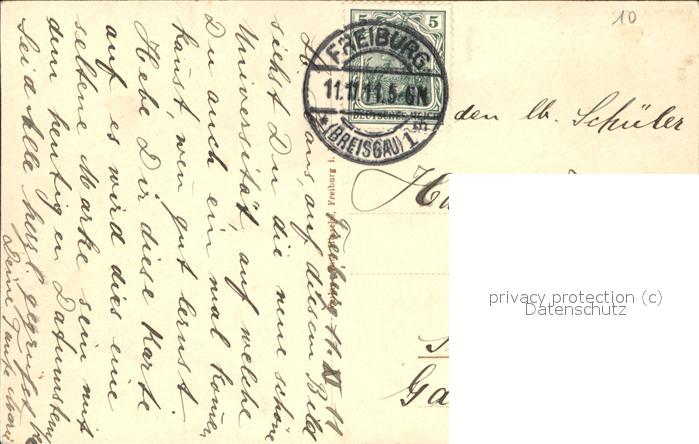 10
5 5
DEUTSCHES REICH
FREIBURG
11.11.11.5-6N
* (BREISGAU) 1
den lb. Schüler
Ga
Freiburg i.
Freiburg 11. XI 11
aus, auf diesem Bild
siehst Du die neue schöne
Universität, auf welche
Du auch ein mal komen
kanst, wen gut lernst.
Hebe Dir diese Karte
auf es wird dies eine
seltene Marke sein mit
dem heutigen Datumstem
Seid Alle herzl. gegrüßt
Deine Tante
privacy protection (c)
Datenschutz